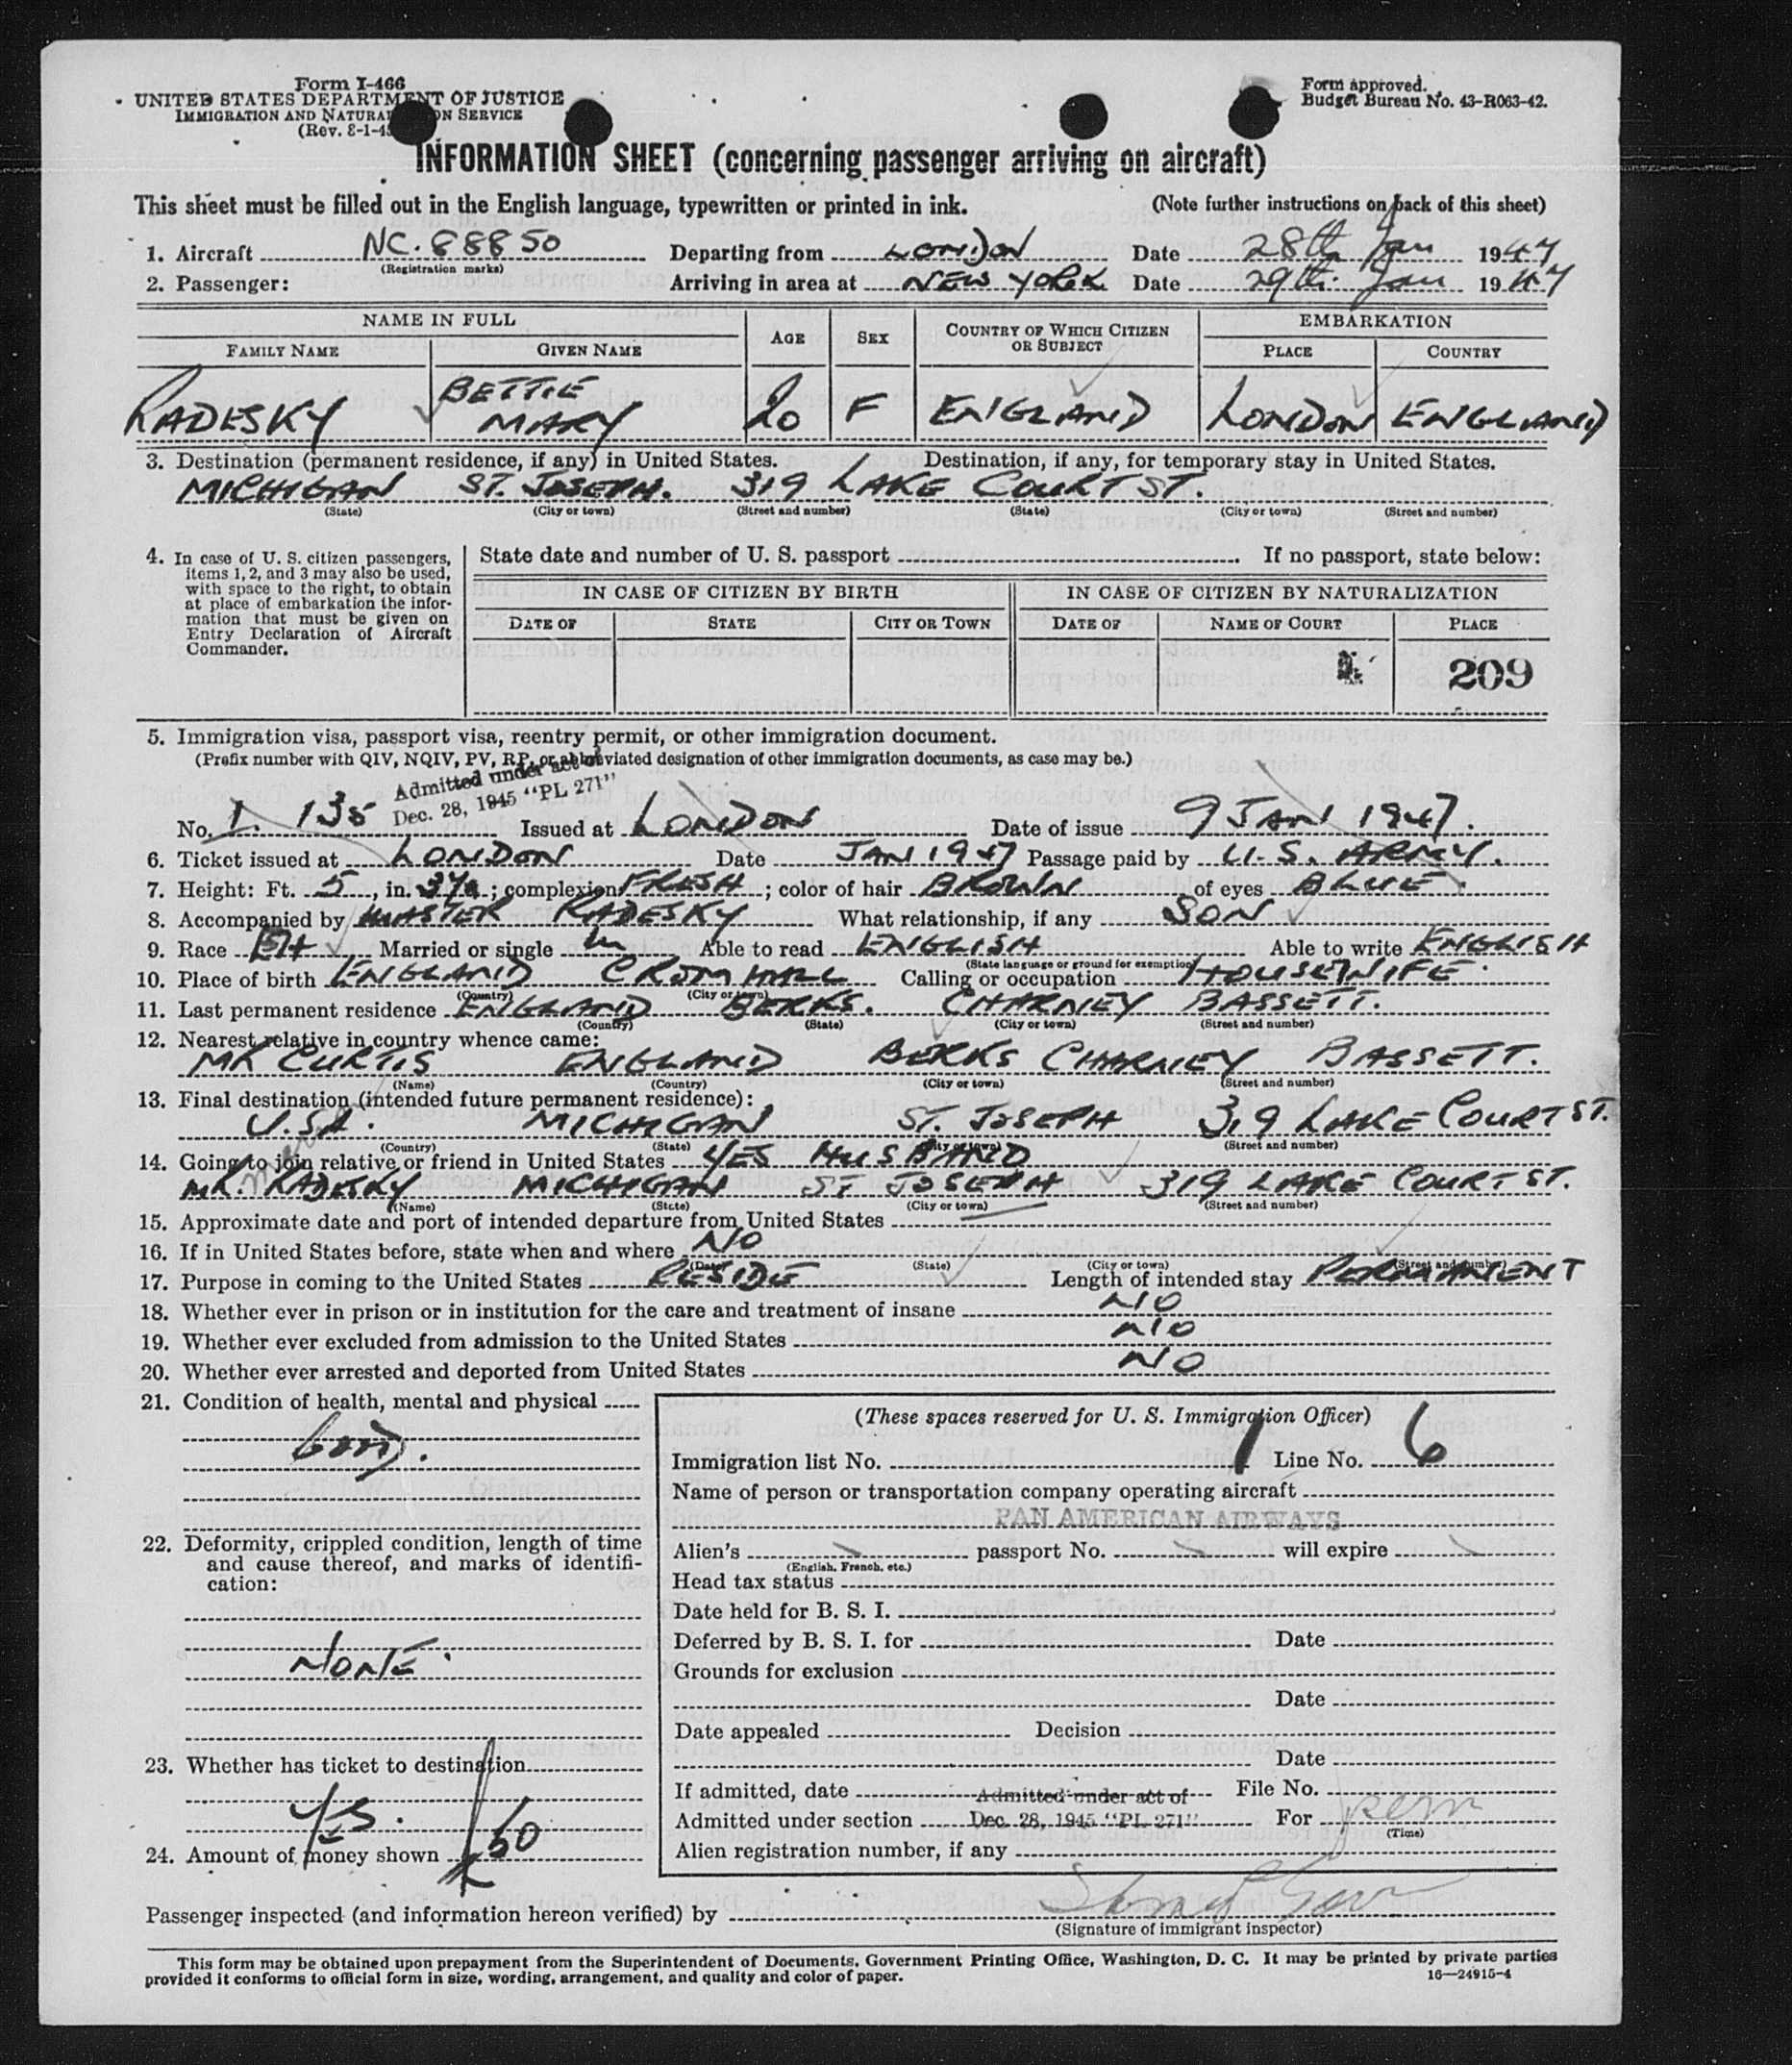 Form I-466
UNITED STATES DEPARTMENT OF JUSTICE
IMMIGRATION AND NATURALIZATION SERVICE
(Rev. 8-1-45)
Form approved.
Budget Bureau No. 43-R063-42.
INFORMATION SHEET (concerning passenger arriving on aircraft)
This sheet must be filled out in the English language, typewritten or printed in ink. (Note further instructions on back of this sheet)
1. Aircraft NC.88850 Departing from LONDON Date 28th Jan 1947
(Registration marks)
2. Passenger: Arriving in area at NEW YORK Date 29th Jan 1947
NAME IN FULL AGE SEX COUNTRY OF WHICH CITIZEN OR SUBJECT EMBARKATION
FAMILY NAME GIVEN NAME PLACE COUNTRY
RADESKY BETTIE MARY 20 F ENGLAND LONDON ENGLAND
3. Destination (permanent residence, if any) in United States. Destination, if any, for temporary stay in United States.
MICHIGAN ST. JOSEPH. 319 LAKE COURT ST.
(State) (City or town) (Street and number) (State) (City or town) (Street and number)
4. In case of U. S. citizen passengers,
items 1, 2, and 3 may also be used,
with space to the right, to obtain
at place of embarkation the infor-
mation that must be given on
Entry Declaration of Aircraft
Commander.
State date and number of U. S. passport If no passport, state below:
IN CASE OF CITIZEN BY BIRTH IN CASE OF CITIZEN BY NATURALIZATION
DATE OF STATE CITY OR TOWN DATE OF NAME OF COURT PLACE
209
5. Immigration visa, passport visa, reentry permit, or other immigration document.
(Prefix number with QIV, NQIV, PV, RP, or abbreviated designation of other immigration documents, as case may be.)
Admitted under act of
Dec. 28, 1945 "PL 271"
No. 1. 135 Issued at LONDON Date of issue 9 JAN 1947.
6. Ticket issued at LONDON Date JAN 1947 Passage paid by U.S. ARMY.
7. Height: Ft. 5, in. 3¾; complexion FRESH; color of hair BROWN of eyes BLUE.
8. Accompanied by MASTER RADESKY What relationship, if any SON
9. Race Married or single m Able to read ENGLISH Able to write ENGLISH
(State language or ground for exemption)
10. Place of birth ENGLAND CROMHALL Calling or occupation HOUSEWIFE.
(Country) (City or town)
11. Last permanent residence ENGLAND BERKS. CHARNEY BASSETT.
(Country) (State) (City or town) (Street and number)
12. Nearest relative in country whence came:
MR CURTIS ENGLAND BERKS CHARNEY BASSETT.
(Name) (Country) (City or town) (Street and number)
13. Final destination (intended future permanent residence):
U.S.A. MICHIGAN ST. JOSEPH 319 LAKE COURT ST.
(Country) (State) (City or town) (Street and number)
14. Going to join relative or friend in United States YES HUSBAND
MR. RADESKY MICHIGAN ST JOSEPH 319 LAKE COURT ST.
(Name) (State) (City or town) (Street and number)
15. Approximate date and port of intended departure from United States
16. If in United States before, state when and where NO
(Date) (State) (City or town) (Street and number)
17. Purpose in coming to the United States RESIDE Length of intended stay PERMANENT
18. Whether ever in prison or in institution for the care and treatment of insane NO
19. Whether ever excluded from admission to the United States NO
20. Whether ever arrested and deported from United States NO
21. Condition of health, mental and physical
Good.
22. Deformity, crippled condition, length of time
and cause thereof, and marks of identifi-
cation:
NONE.
23. Whether has ticket to destination
Yes.
24. Amount of money shown 50
(These spaces reserved for U. S. Immigration Officer)
Immigration list No. 1 Line No. 6
Name of person or transportation company operating aircraft
PAN AMERICAN AIRWAYS
Alien's passport No. will expire
(English, French, etc.)
Head tax status
Date held for B. S. I.
Deferred by B. S. I. for Date
Grounds for exclusion
Date
Date appealed Decision
Date
If admitted, date Admitted under act of File No.
Admitted under section Dec. 28, 1945 "PL 271" For perm
(Time)
Alien registration number, if any
Passenger inspected (and information hereon verified) by
(Signature of immigrant inspector)
This form may be obtained upon prepayment from the Superintendent of Documents, Government Printing Office, Washington, D. C. It may be printed by private parties
provided it conforms to official form in size, wording, arrangement, and quality and color of paper. 16—24915-4